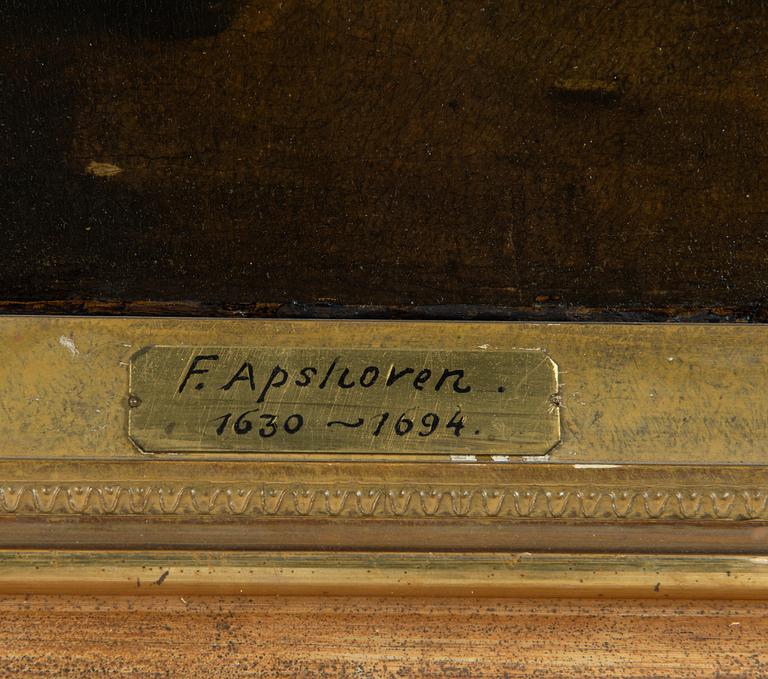 F. Apshoven.
1630 ~ 1694.